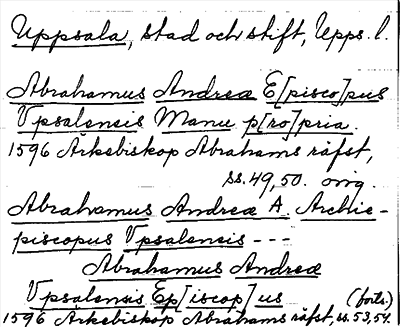 Uppsala, stad och stift, Upps. l.
Abrahamus Andreæ E[pisco]pus
Vpsalensis Manu p[ro]pria.
1596 Ärkebiskop Abrahams räfst,
ss. 49, 50. orig.
Abrahamus Andreæ A. Archie-
piscopus Vpsalensis - - -
Abrahamus Andreæ
Vpsalensis Ep[iscop]us (forts.)
1596 Ärkebiskop Abrahams räfst, ss. 53, 54.